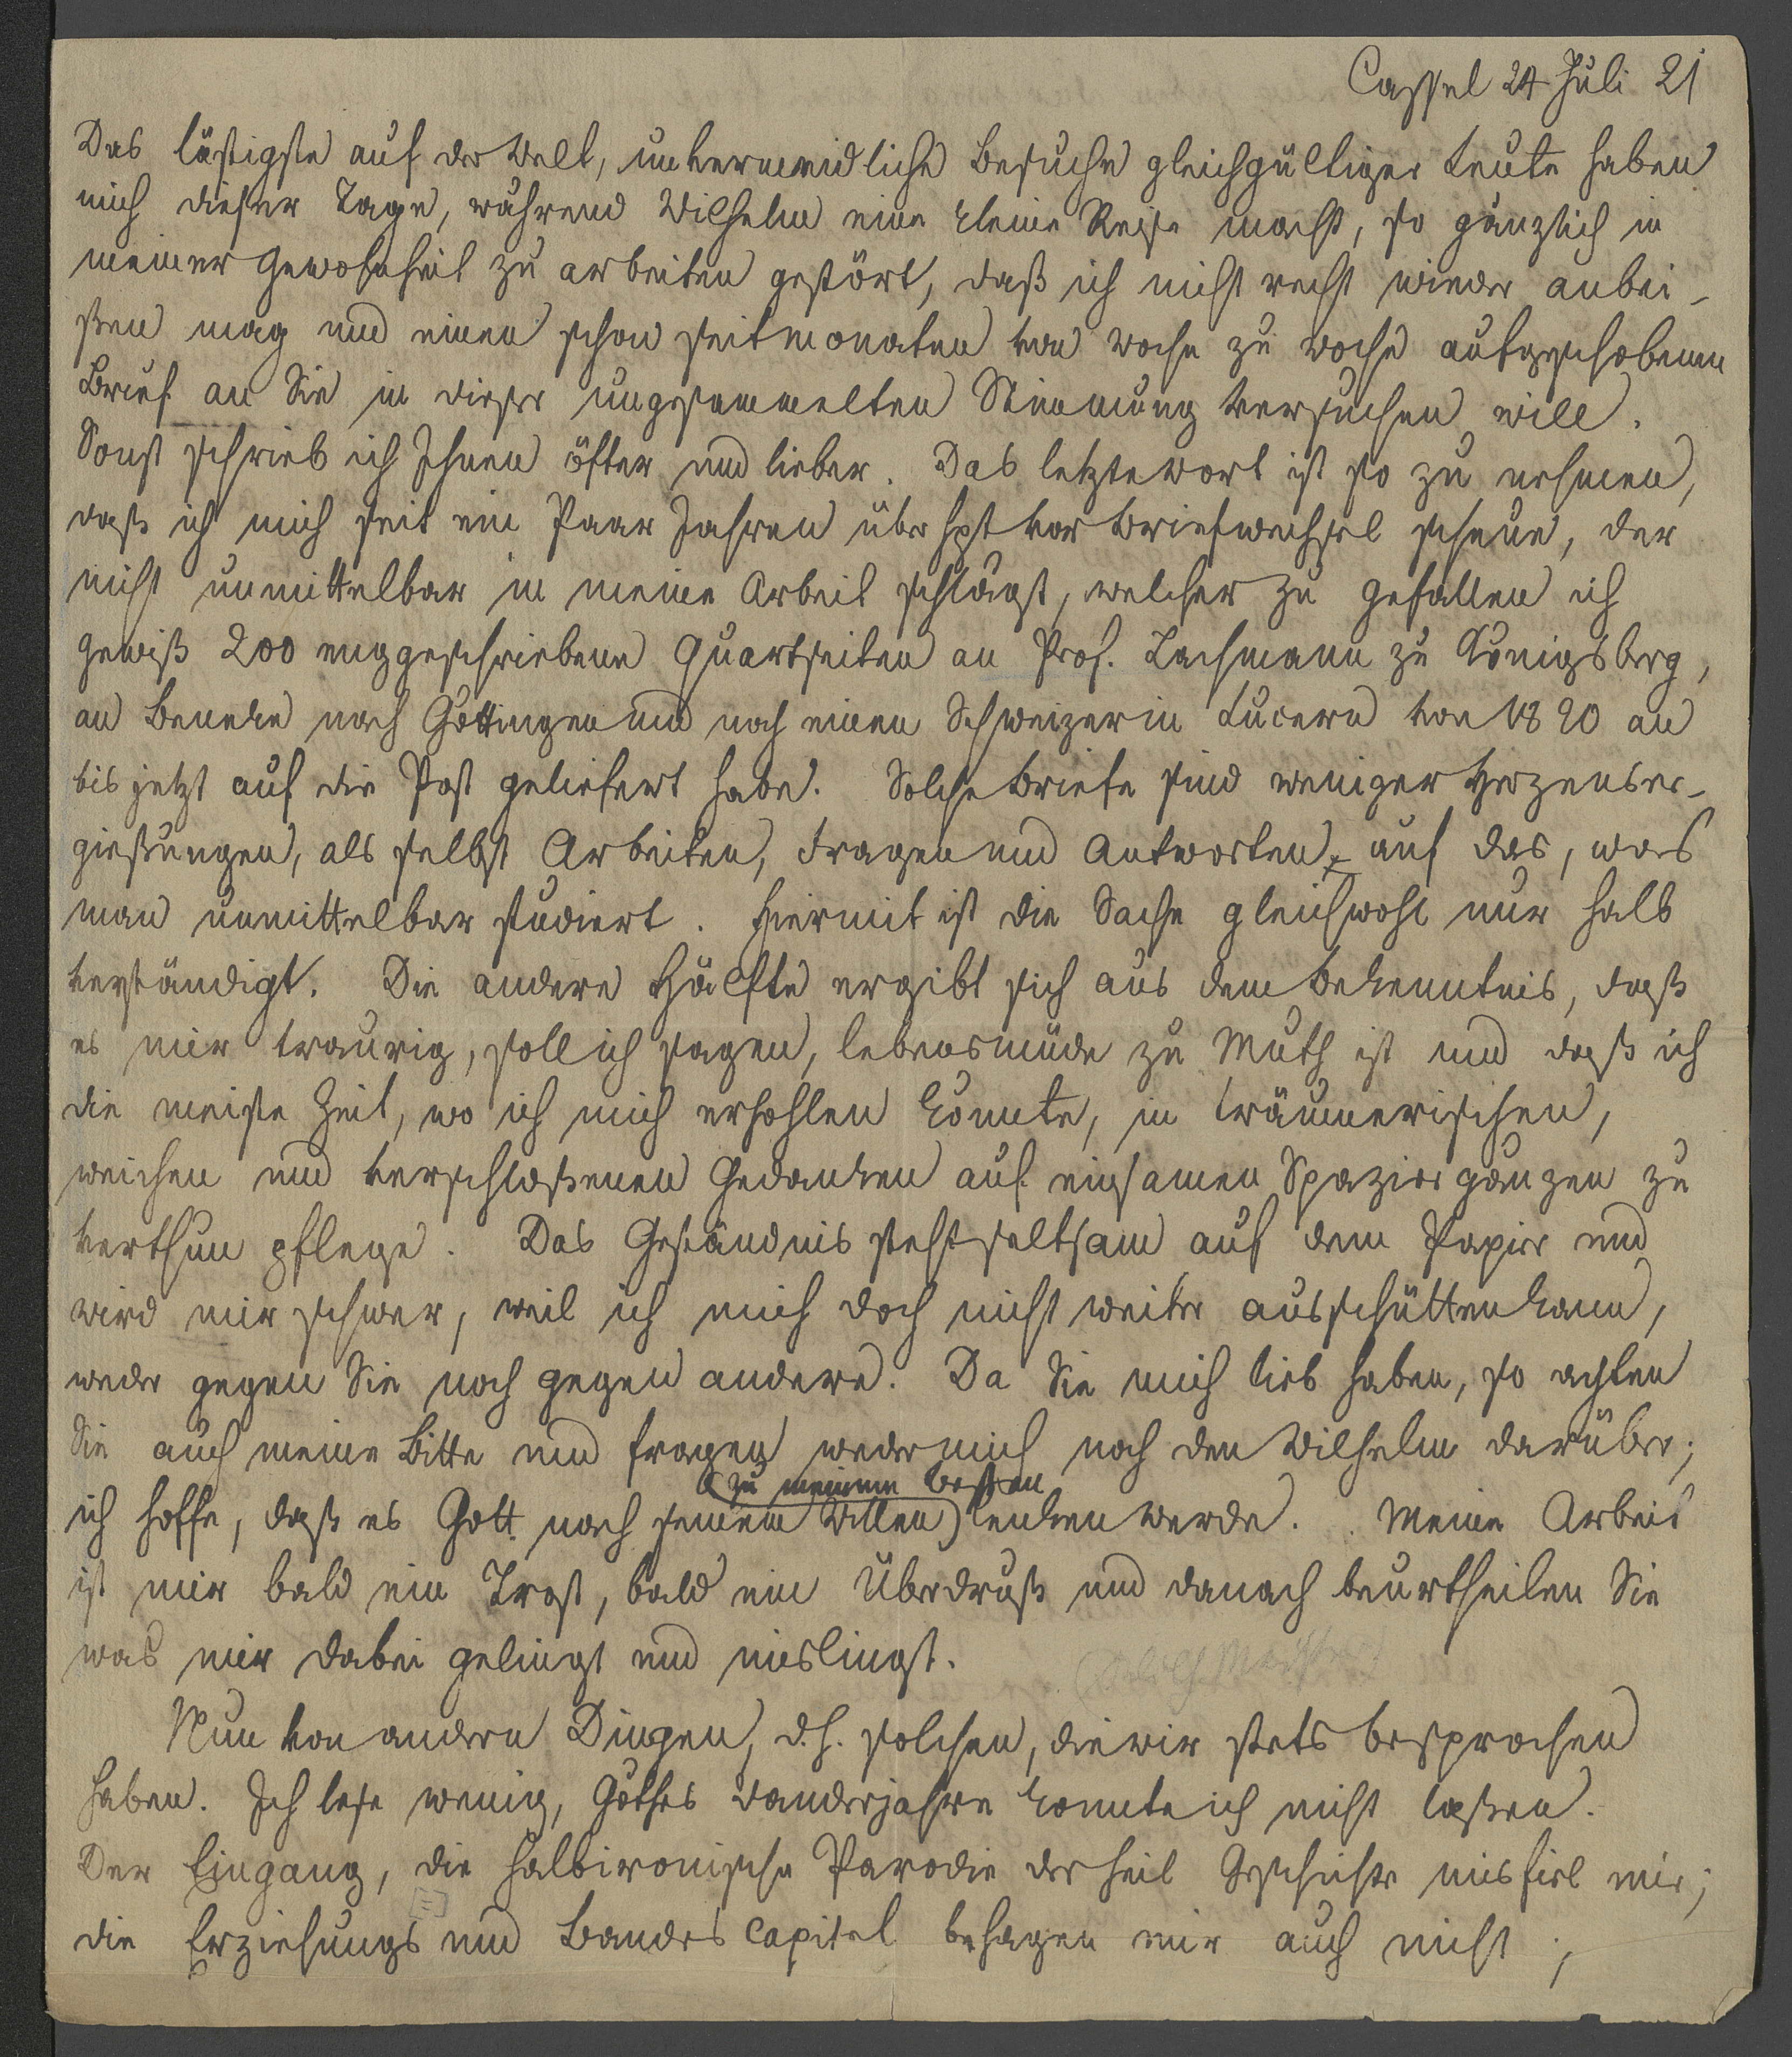 Cassel 24 Juli 21
Das lästigste auf der Welt, unvermeidliche Besuche gleichgültiger Leute haben
mich dieser Tage, während Wilhelm eine kleine Reise macht, so gänzlich in
meiner Gewohnheit zu arbeiten gestört, daß ich nicht recht wieder anbei-
ßen mag und einen schon seit monaten von woche zu woche aufgeschobenen
Brief an Sie in dieser ungesammelten Stimmung versuchen will.
Sonst schrieb ich Ihnen öfter und lieber. Das letzte wort ist so zu nehmen,
daß ich mich seit ein Paar Jahren überhpt vor briefwechsel scheue, der
nicht unmittelbar in meine Arbeit schlägt, welcher zu gefallen ich
gewiß 200 enggeschriebene Quartseiten an Prof. Lachmann zu Königsberg,
an Beneke nach Göttingen und noch einen Schweizer in Lucern von 1820 an
bis jetzt auf die Post geliefert habe. Solche briefe sind weniger Herzenser-
gießungen, als selbst Arbeiten, Fragen und Antworten auf das, was
man unmittelbar studiert. Hiermit ist die Sache gleichwohl nur halb
verständigt. Die andere Hälfte ergibt sich aus dem bekenntnis, daß
es mir traurig, soll ich sagen, lebensmüde zu Muth ist und daß ich
die meiste Zeit, wo ich mich erhohlen könnte, in träumerischen,
weichen und verschloßenen Gedanken auf einsamen Spaziergängen zu
verthun pflege. Das Geständnis steht seltsam auf dem Papier und
wird mir schwer, weil ich mich doch nicht weiter ausschütten kann,
weder gegen Sie noch gegen andere. Da Sie mich lieb haben, so achten
Sie auch meine Bitte und fragen weder mich noch den Wilhelm darüber;
zu meinem besten
ich hoffe, daß es Gott nach seinem Willen) lenken werde. Meine Arbeit
ist mir bald ein Trost, bald ein Überdruß und danach beurtheilen Sie
was mir dabei gelingt und mislingt.
Nun von andern Dingen, d.h. solchen, die wir stets besprochen
haben. Ich lese wenig, Göthes wanderjahre konnte ich nicht laßen.
Der Eingang, die halbironische Parodie der heil Geschichte misfiel mir;
die Erziehungs und Bandes capitel behagen mir auch nicht;